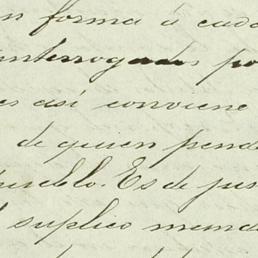 en forma á cada
interrogados po
es así conviene
de quien pende
pueblo. Es de jus
suplico manda